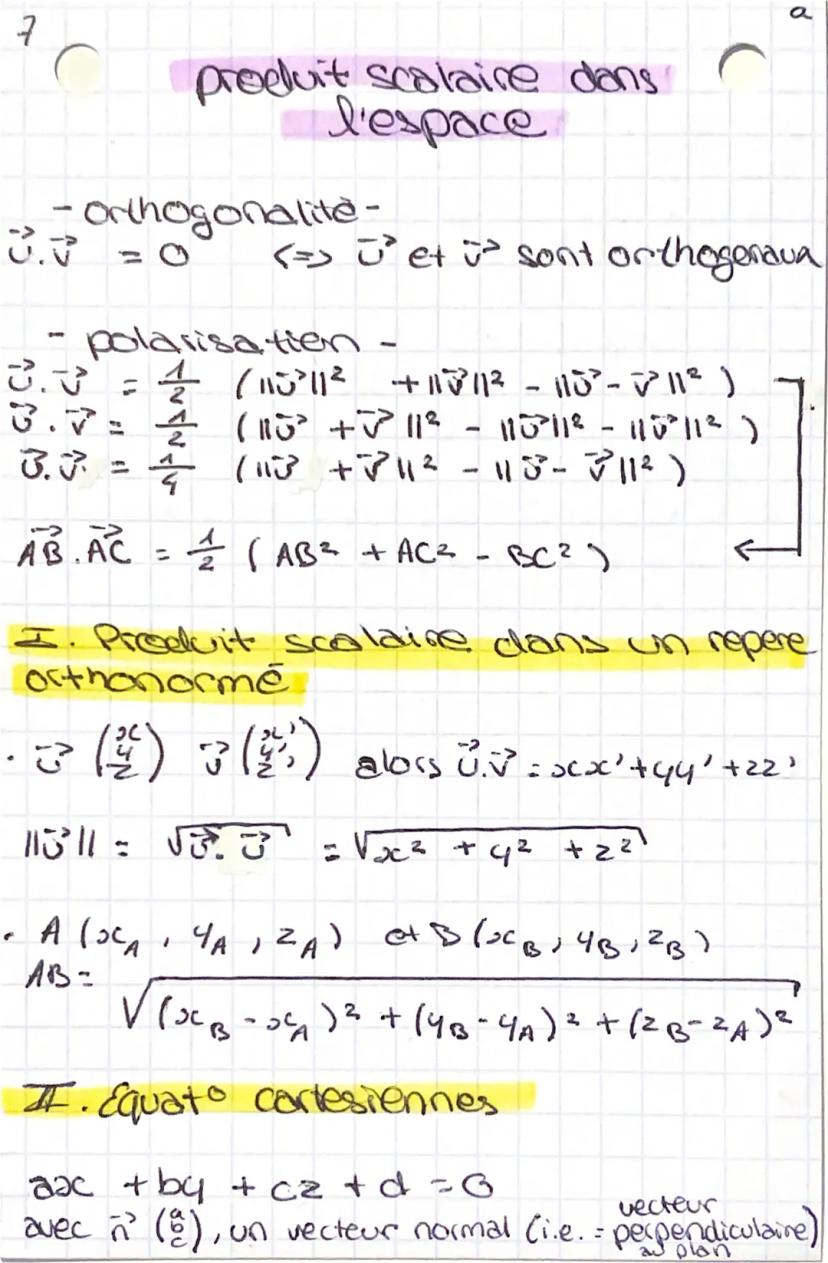 7
a
produit scalaire dans
l'espace
- orthogonalité -
u⃗.v⃗ = 0 <=> u⃗ et v⃗ sont orthogonaux
- polarisation -
u⃗.v⃗ = 1/2 (||u⃗||² + ||v⃗||² - ||u⃗ - v⃗||²)
u⃗.v⃗ = 1/2 (||u⃗ + v⃗||² - ||u⃗||² - ||v⃗||²)
u⃗.v⃗ = 1/4 (||u⃗ + v⃗||² - ||u⃗ - v⃗||²)
AB⃗.AC⃗ = 1/2 (AB² + AC² - BC²)
I. Produit scalaire dans un repere
orthonormé
. u⃗ (x y z) v⃗ (x' y' z') alors u⃗.v⃗ = xx' + yy' + zz'
||u⃗|| = √(u⃗.u⃗) = √(x² + y² + z²)
. A (x_A, y_A, z_A) et B (x_B, y_B, z_B)
AB =
√((x_B - x_A)² + (y_B - y_A)² + (z_B - z_A)²)
II. Equat° cartesiennes
ax + by + cz + d = 0
avec n⃗ (a b c), un vecteur normal (i.e. = vecteur perpendiculaire)
au plan